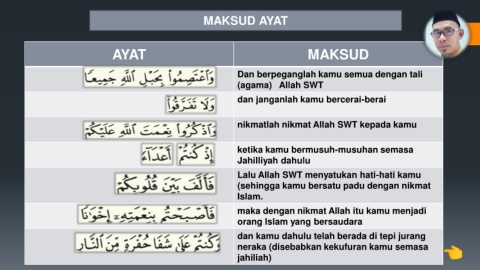 MAKSUD AYAT
AYAT
MAKSUD
وَاعْتَصِمُوا بِحَبْلِ اللَّهِ جَمِيعًا
Dan berpeganglah kamu semua dengan tali
(agama) Allah SWT
وَلَا تَفَرَّقُوا
dan janganlah kamu bercerai-berai
وَاذْكُرُوا نِعْمَتَ اللَّهِ عَلَيْكُمْ
nikmatlah nikmat Allah SWT kepada kamu
إِذْ كُنتُمْ أَعْدَاءً
ketika kamu bermusuh-musuhan semasa
Jahilliyah dahulu
فَأَلَّفَ بَيْنَ قُلُوبِكُمْ
Lalu Allah SWT menyatukan hati-hati kamu
(sehingga kamu bersatu padu dengan nikmat
Islam.
فَأَصْبَحْتُم بِنِعْمَتِهِ إِخْوَانًا
maka dengan nikmat Allah itu kamu menjadi
orang Islam yang bersaudara
وَكُنتُمْ عَلَىٰ شَفَا حُفْرَةٍ مِّنَ النَّارِ
dan kamu dahulu telah berada di tepi jurang
neraka (disebabkan kekufuran kamu semasa
jahiliah)